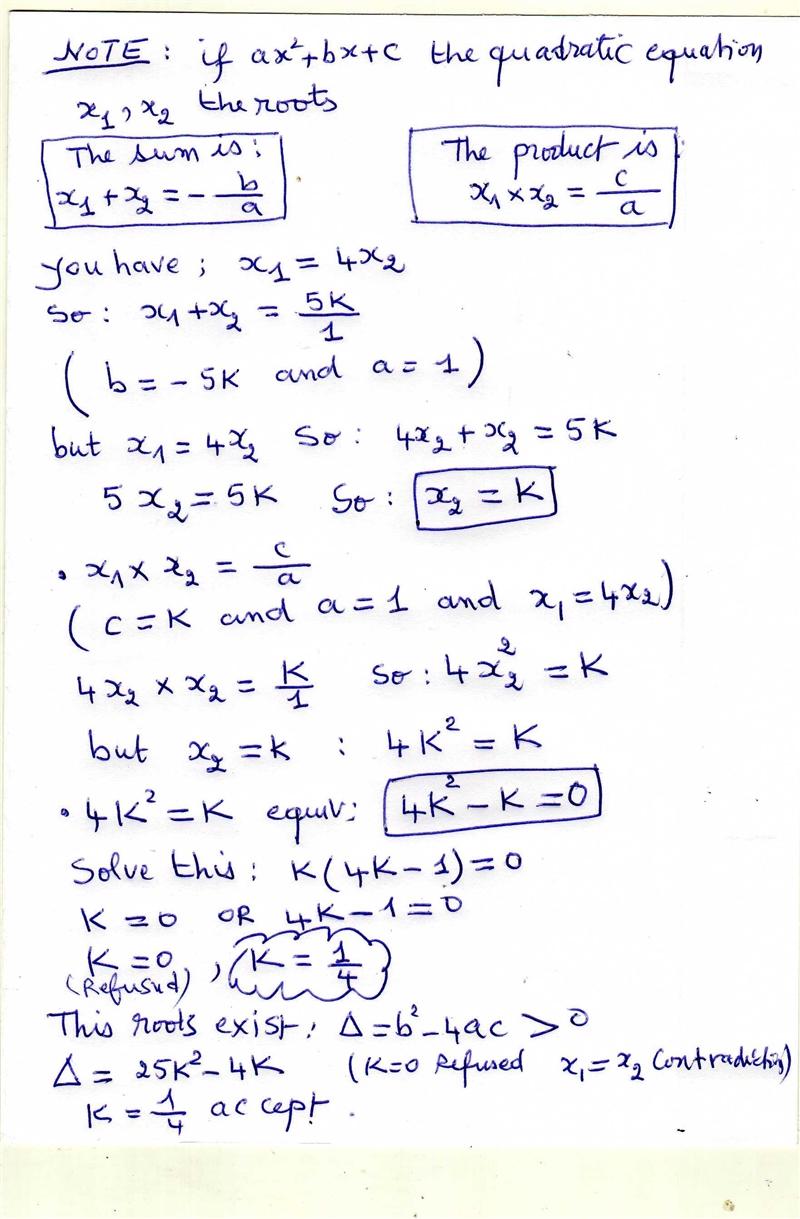 NOTE : if ax²+bx+c the quadratic equation
x₁, x₂ the roots
The sum is :
x₁ + x₂ = - b/a
The product is :
x₁ × x₂ = c/a
you have ; x₁ = 4x₂
so : x₁ + x₂ = 5K/1
( b = - 5K and a = 1 )
but x₁ = 4x₂ so : 4x₂ + x₂ = 5K
5 x₂ = 5K So : x₂ = K
. x₁ × x₂ = c/a
( c = K and a = 1 and x₁ = 4x₂ )
4x₂ × x₂ = K/1 so : 4x₂² = K
but x₂ = k : 4K² = K
. 4K² = K equiv: 4K² - K = 0
Solve this : K(4K - 1) = 0
K = 0 OR 4K - 1 = 0
K = 0 , K = 1/4
(Refused)
This roots exist : Δ = b² - 4ac > 0
Δ = 25K² - 4K (K=0 Refused x₁ = x₂ Contradiction)
K = 1/4 accept .